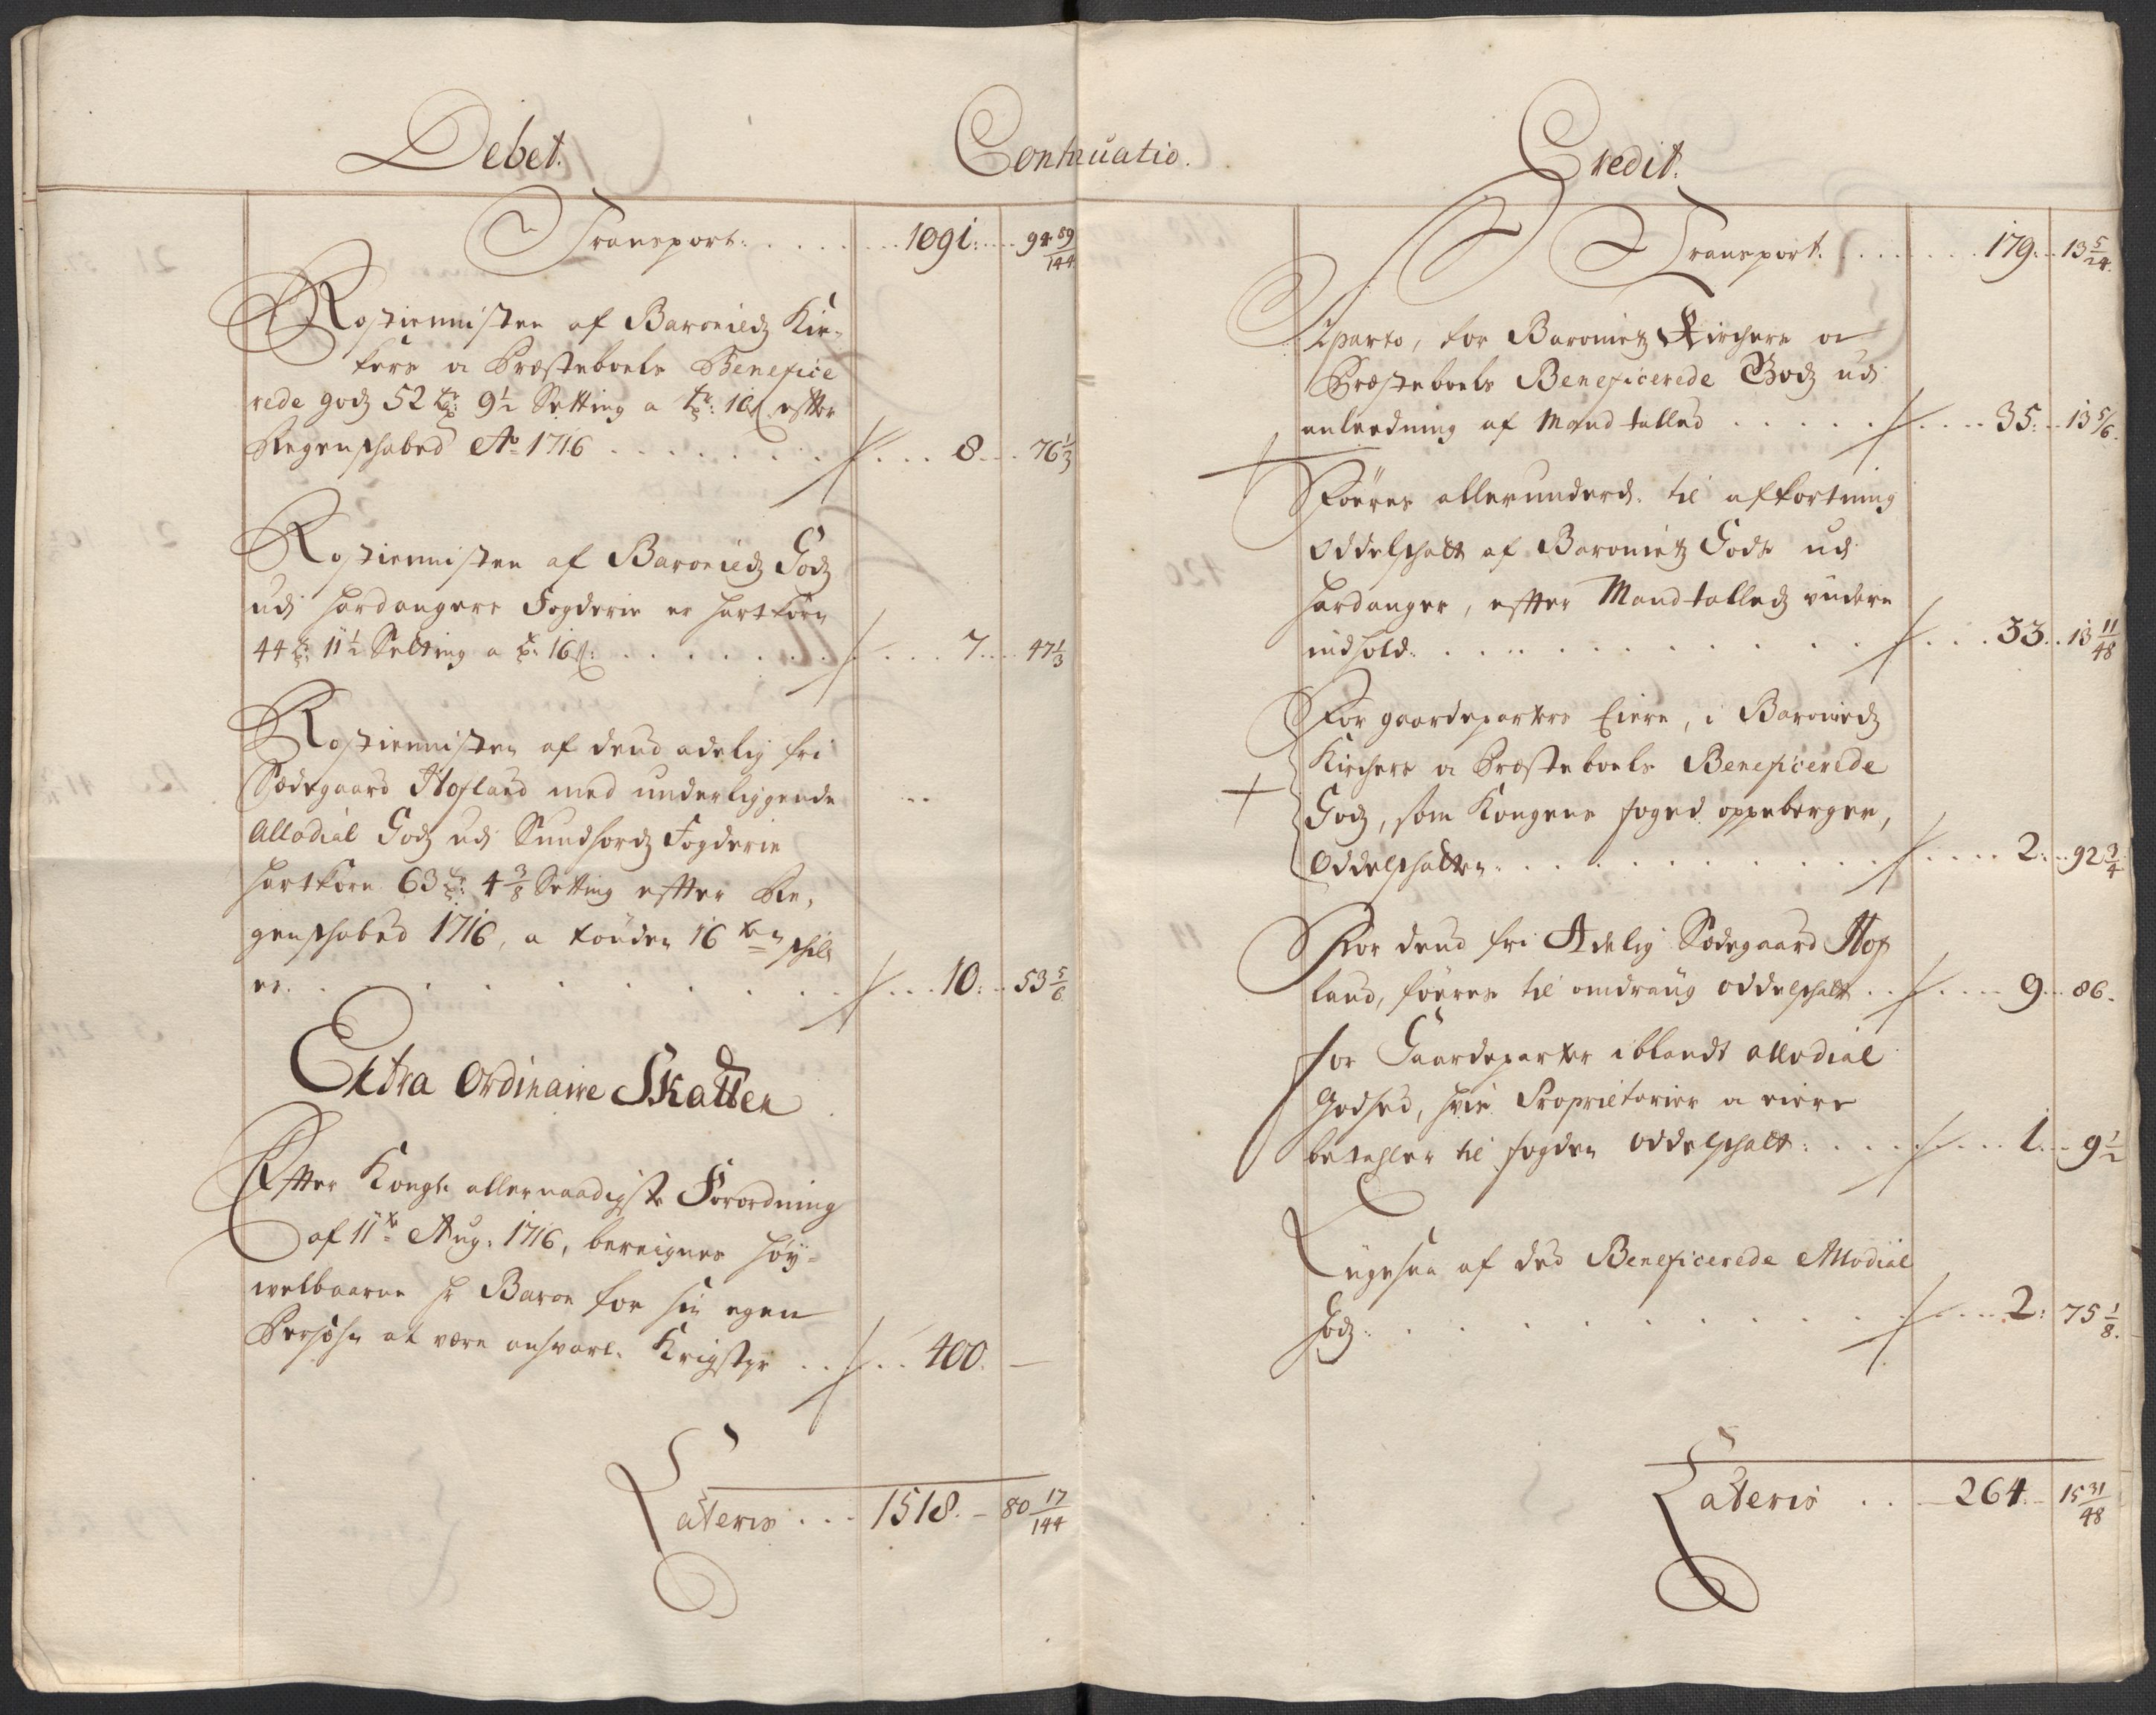 Debet.
Continuatio.
Transport. 1091: 94 89/144
Rostiennisten af Baronied Kir-
kers oc Præsteboels Benefice
rede god 52 tr: 9½ Setting a tr: 16 s efter
Regenskabed Ao 1716 8 76⅓
Rostiennisten af Baronied God
udi Hardangers Fogderie er Hartkorn
44 tr: 11½ Setting a tr: 16 s: 7 47⅓
Rostiennisten af dend adelig fri
Sædegaard Hofland med underliggende
Allodial God udi Sundhord Fogderie
Hartkorn 63 tr: 4⅜ Setting efter Re-
genskabed 1716, a tønden 16 ten skill
er 10: 53⅚
Extra Ordinaire Skatten
Efter Kongl. allernaadigste Forordning
af 11te Aug: 1716, beregnes Høy-
welbaarne Hr Baron for sin egen
Persohn at være ansvarl. Krigstyr 400. —
Lateris 1518. 80 17/144
Credit.
Transport. 179: 13 5/24
Aparto, for Baroniets Kirchers oc
Præsteboels Beneficerede God udi
anledning af Mandtalled 35: 13⅚
Føeres allerunderd. til afkortning
Oddelskatt af Baroniets Gods udi
Hardanger, efter Mandtalleds videre
indhold. 33 13 11/48
For gaardeparters Eiere, i Baronied
Kirchers oc Præsteboels Beneficerede
God, som Kongens foged oppeberger,
Oddelskatten 2: 92¾
For dend fri Adelig Sædegaard Hof
land, føeres til omdraug oddelskatt 9 86.
for Gaardeparter iblandt allodial
Godsed, hvis Proprietarier oc eiere
betahler til fogden oddelskatt: 1 9½
Ligesaa af ded Beneficerede Allodial
God: 2: 75⅛
Lateris 264 15 31/48